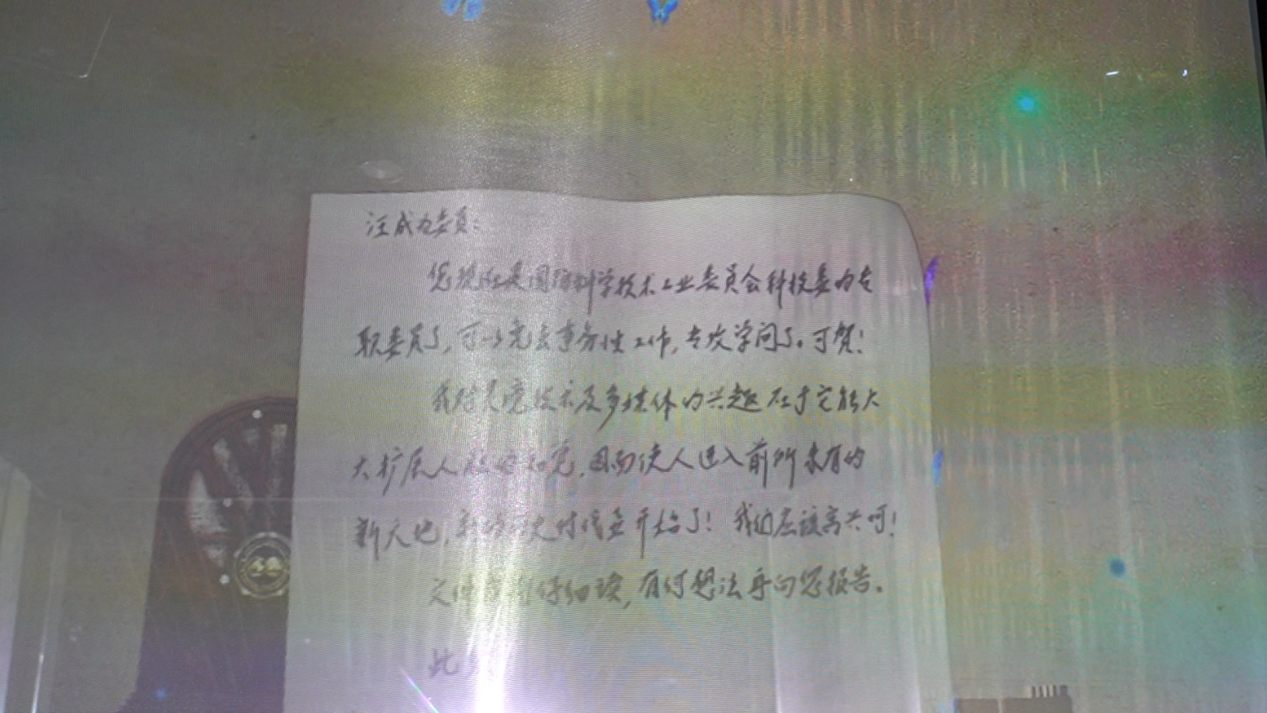 汪成为委员:
您现在是国防科学技术工业委员会科技委的专
职委员了,可以完全事务性工作,专攻学问了。可贺!
我对灵境技术及多媒体的兴趣在于它能大
大扩展人的知觉,因而使人进入前所未有的
新天地,新的历史时代要开始了!我们应该高兴呵!
文件当仔细读,有何想法再向您报告。
此